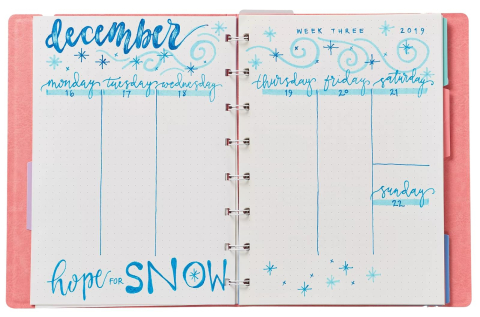 december
WEEK THREE 2019
monday tuesday wednesday
16 17 18
thursday friday saturday
19 20 21
sunday
22
hope FOR SNOW